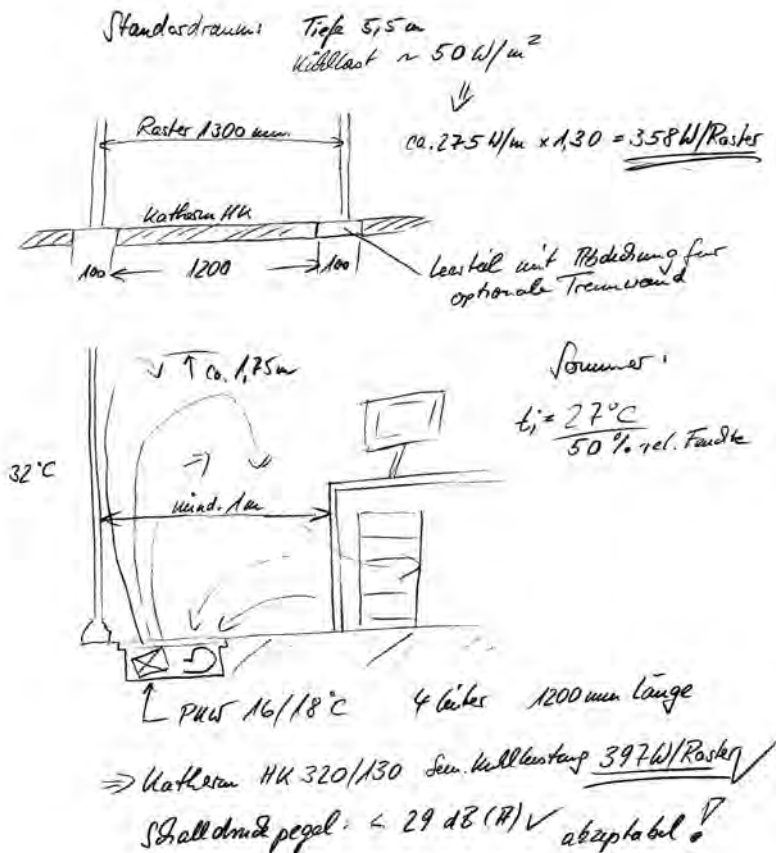 Standardraum: Tiefe 5,5 m
Kühllast ~ 50 W/m²
⇓
Raster 1300 mm
ca. 275 W/m x 1,30 = 358 W/Raster
Katherm HK
100 1200 100
Leerteil mit Abdeckung für
optionale Trennwand
↓ ↑ ca. 1,75m
Sommer:
ti = 27°C
50 % rel. Feuchte
32°C
mind. 1m
PKW 16/18°C 4 Leiter 1200 mm Länge
⇒ Katherm HK 320/130 Sen. Kühlleistung 397 W/Raster ✓
Schalldruckpegel: < 29 dB(A) ✓ akzeptabel!